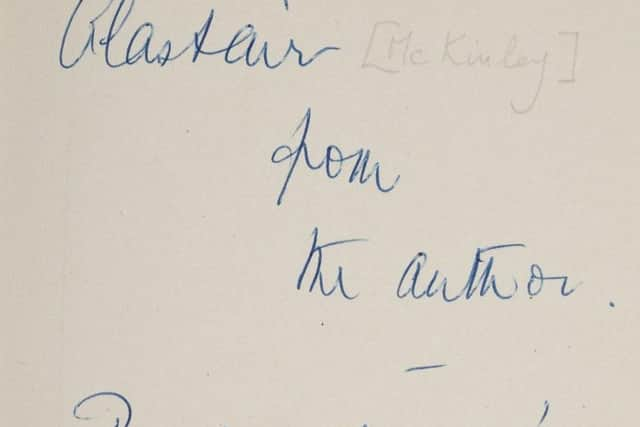 Alastair [McKinley]
from
the author.
—